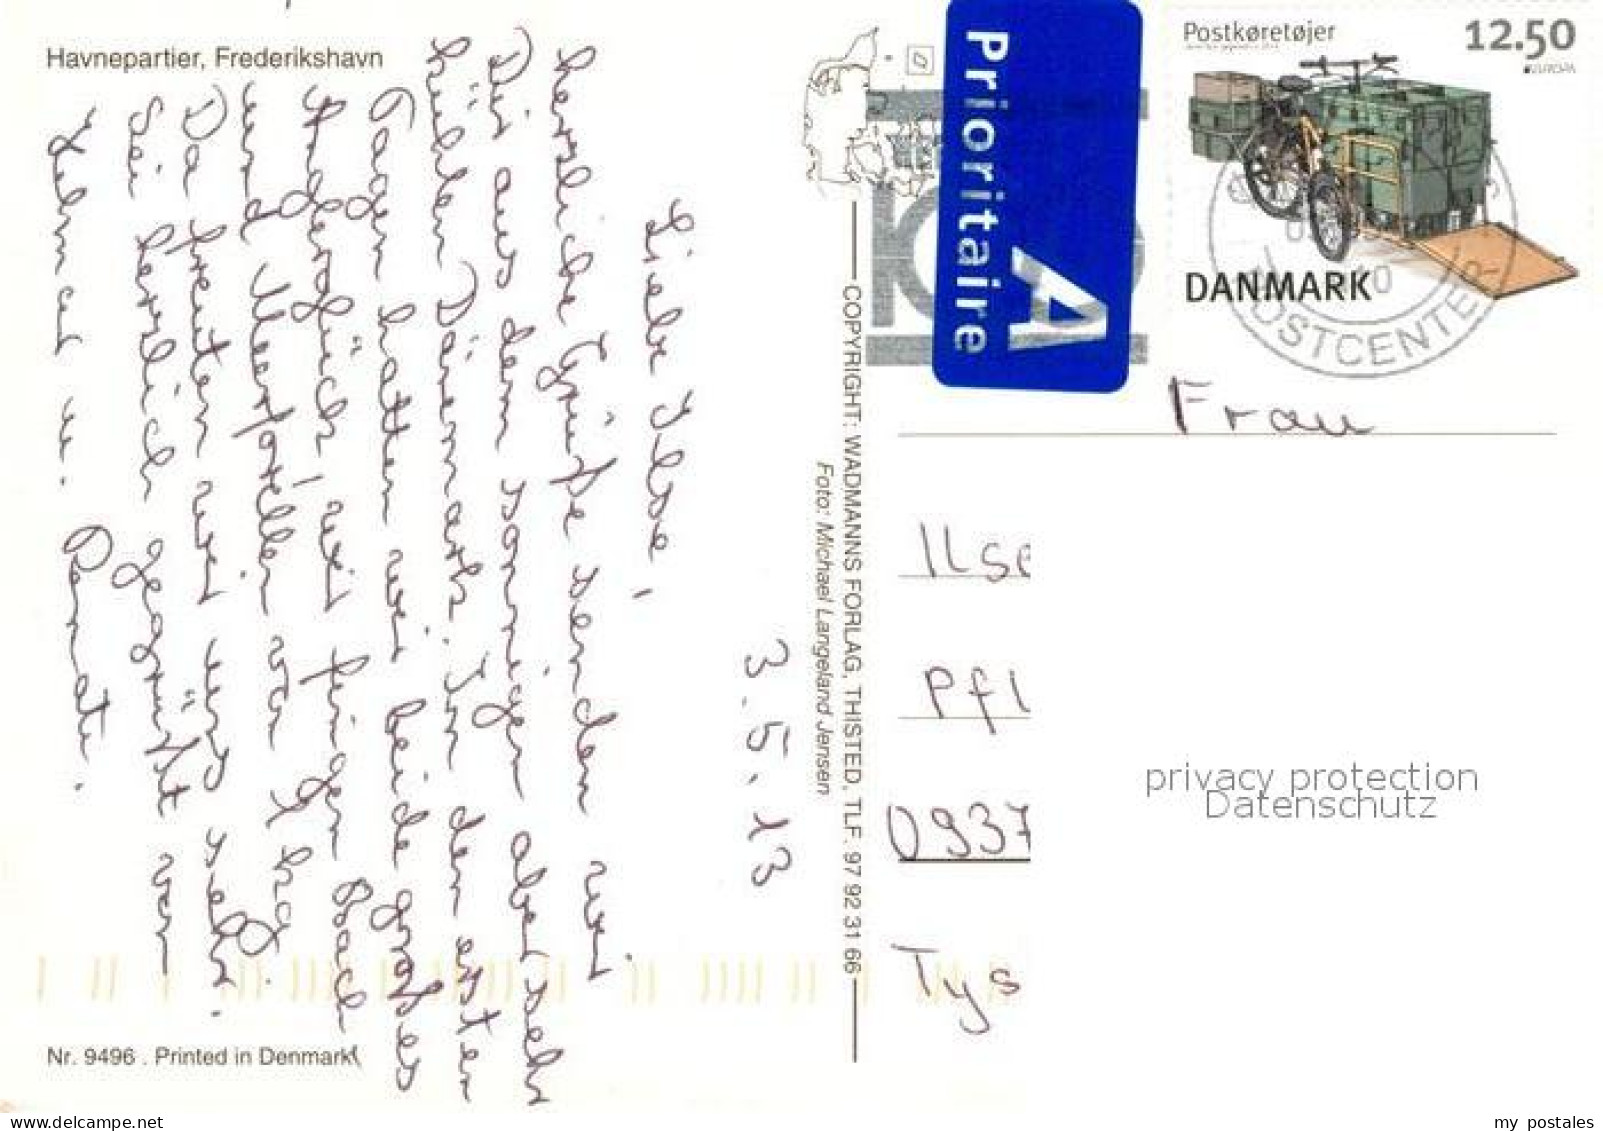 Havnepartier, Frederikshavn
3.5.13
Liebe Ilse,
herzliche Grüße senden wir
Dir aus dem sonnigen aber sehr
kühlen Dänemark. In den ersten
Tagen hatten wir beide großes
Angelglück, wir fingen Bach
und Meerforellen von 2 kg.
Da freuten wir uns sehr.
Sei herzlich gegrüßt von
Helmut u. Renate.
Nr. 9496 . Printed in Denmark
COPYRIGHT: WADMANNS FORLAG, THISTED, TLF. 97 92 31 66
Foto: Michael Langeland Jensen
Prioritaire
A
Postkøretøjer
12.50
EUROPA
DANMARK
POSTCENTER
Frau
Ilse
Pfl
0937
Tys
privacy protection
Datenschutz
www.delcampe.net
my_postales